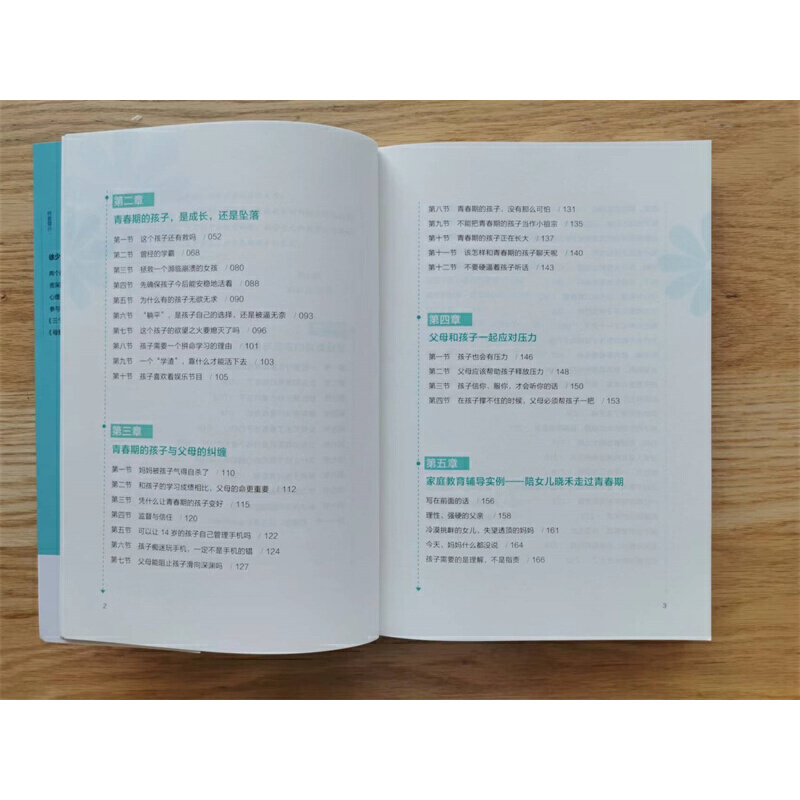 第二章
青春期的孩子，是成长，还是坠落
第一节 这个孩子还有救吗 / 052
第二节 曾经的学霸 / 068
第三节 拯救一个濒临崩溃的女孩 / 080
第四节 先确保孩子今后能安稳地活着 / 088
第五节 为什么有的孩子无欲无求 / 090
第六节 “躺平”，是孩子自己的选择，还是被逼无奈 / 093
第七节 这个孩子的欲望之火要熄灭了吗 / 096
第八节 孩子需要一个拼命学习的理由 / 101
第九节 一个“学渣”，靠什么才能活下去 / 103
第十节 孩子喜欢看娱乐节目 / 105
第三章
青春期的孩子与父母的纠缠
第一节 妈妈被孩子气得自杀了 / 110
第二节 和孩子的学习成绩相比，父母的命更重要 / 112
第三节 凭什么让青春期的孩子变好 / 115
第四节 监督与信任 / 120
第五节 可以让 14 岁的孩子自己管理手机吗 / 122
第六节 孩子痴迷玩手机，一定不是手机的错 / 124
第七节 父母能阻止孩子滑向深渊吗 / 127
2
第八节 青春期的孩子，没有那么可怕 / 131
第九节 不能把青春期的孩子当作小祖宗 / 135
第十节 青春期的孩子正在长大 / 137
第十一节 该怎样和青春期的孩子聊天呢 / 140
第十二节 不要硬逼着孩子听话 / 143
第四章
父母和孩子一起应对压力
第一节 孩子也会有压力 / 146
第二节 父母应该帮助孩子释放压力 / 148
第三节 孩子信你、服你，才会听你的话 / 150
第四节 在孩子撑不住的时候，父母必须帮孩子一把 / 153
第五章
家庭教育辅导实例——陪女儿晓禾走过青春期
写在前面的话 / 156
理性，强硬的父亲 / 158
冷漠挑衅的女儿，失望透顶的妈妈 / 161
今天，妈妈什么都没说 / 164
孩子需要的是理解，不是指责 / 166
3